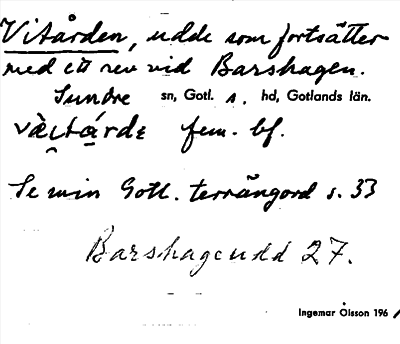 Vitården, udde som fortsätter
med ett rev vid Barshagen.
Sundre sn, Gotl. s. hd, Gotlands län.
fem. bf.
Se min Gotl. terrängord s. 33
Barshageudd 27.
Ingemar Olsson 196